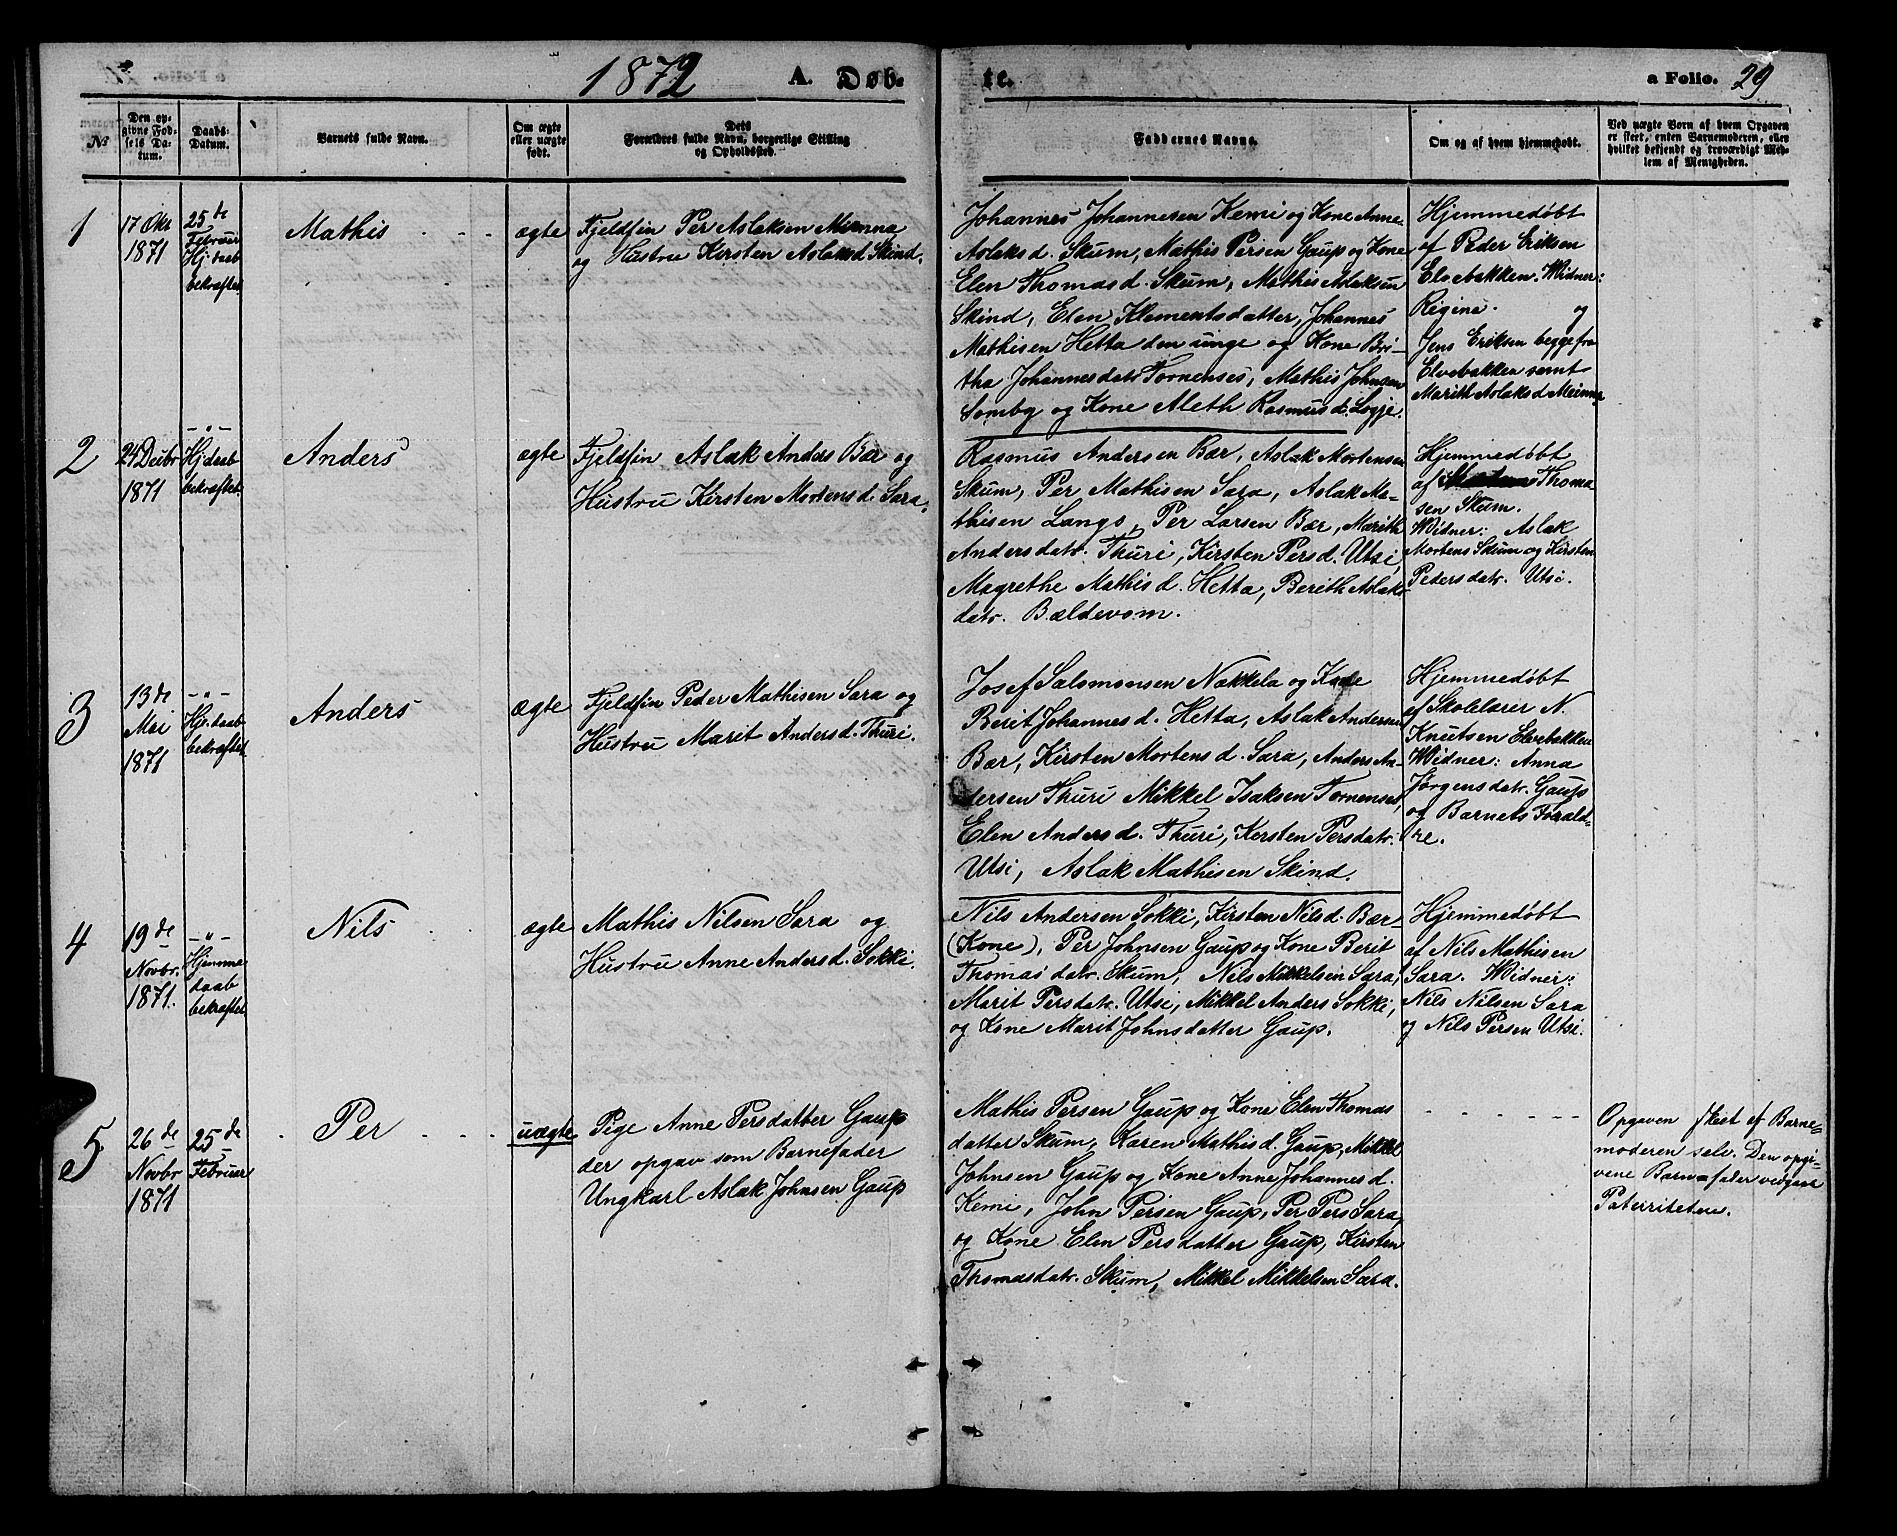 1872 A. Døb-
te.
a Folio. 29
№
Den op-
givne Fød-
sels Da-
tum.
Daabs-
Datum.
Barnets fulde Navn.
Om ægte
eller uægte
født.
Dets
Forældres fulde Navn, borgerlige Stilling
og Opholdssted.
Faddernes Navne.
Om og af hvem hjemmedøbt.
Ved uægte Børn af hvem Opgaven
er skeet, enten Barnemoderen, eller
hvilket bekjendt og troværdigt Med-
lem af Menigheden.
1
17 Okt
1871
25de
Februar
Hj. daab
bekræftet
Mathis
ægte
Fjeldfin Per Aslaksen Mienna
og Hustru Kirsten Aslaksd. Skind.
Johannes Johannesen Kemi og Kone Anne
Aslaksd. Skum, Mathis Persen Gaup og Kone
Elen Thomasd. Skum, Mathis Aslaksen
Skind, Elen Klementsdatter, Johannes
Mathisen Hetta den unge og Kone Bri-
tha Johannesdatr Tornenses, Mathis Johnsen
Somby og Kone Aleth Rasmusd. Logje.
Hjemmedøbt
af Peder Eriksen
Elvebakken. Widner:
Regine. og
Jens Eriksen begge fra
Elvebakken samt
Marith Aslaksd Meinna
2
24 Decbr
1871
-"-
Hj. daab
bekræftet.
Anders
ægte
Fjeldfin Aslak Anders Bær og
Hustru Kirsten Mortensd. Sara.
Rasmus Andersen Bær, Aslak Mortensen
Skum, Per Mathisen Sara, Aslak Ma-
thisen Langs, Per Larsen Bær, Marith
Andersdatr. Thuri, Kirsten Persd. Utsi,
Magrethe Mathisd. Hetta, Berith Aslaks
datr. Bældevom.
Hjemmedøbt
af Thoma
sen Skum.
Widner: Aslak
Mortens Skum og Kirsten
Pedersdatr. Utsi.
3
13de
Mai
1871
-"-
Hje. daab
bekræftet
Anders
ægte
Fjeldfin Peder Mathisen Sara og
Hustru Marit Andersd. Thuri.
Josef Salomonsen Nakkela og Kone
Berit Johannesd. Hetta, Aslak Andersen
Bær, Kirsten Mortensd. Sara, Anders An-
dersen Thuri Mikkel Isaksen Tornenses,
Elen Andersd. Thuri, Kersten Persdatr.
Utsi, Aslak Mathisen Skind.
Hjemmedøbt
af Skolelærer N.
Knutsen Elvebakken
Widner: Anna
Jørgensdatr. Gaup
og Barnets Foræld-
re.
4
19de
Novbr.
1871.
-"-
Hjemme
daab
bekræftet
Nils
ægte
Mathis Nilsen Sara og
Hustru Anne Andersd. Sokki.
Nils Andersen Sokki, Kirsten Nilsd. Bær
(Kone), Per Johnsen Gaup og Kone Berit
Thomasdatr. Skum, Nils Mikkelsen Sara,
Marit Persdatr. Utsi, Mikkel Anders Sokki,
og Kone Marit Johnsdatter Gaup.
Hjemmedøbt
af Nils Mathisen
Sara. Widner:
Nils Nilsen Sara
og Nils Persen Utsi.
5
26de
Novbr
1871
25de
Februar
Per
uægte
Pige Anne Persdatter Gaup
der opgav som Barnefader
Ungkarl Aslak Johnsen Gaup
Mathis Persen Gaup og Kone Elen Thomas
datter Skum, Karen Mathisd. Gaup, Mikkel
Johnsen Gaup og Kone Anne Johannesd.
Kemi, John Persen Gaup, Per Pers Sara,
og Kone Elen Persdatter Gaup, Kirsten
Thomasdatr. Skum, Mikkel Mikkelsen Sara.
Opgaven skeet af Barne-
moderen selv. Den opgi-
vene Barnefader vedgaar
Paterniteten.